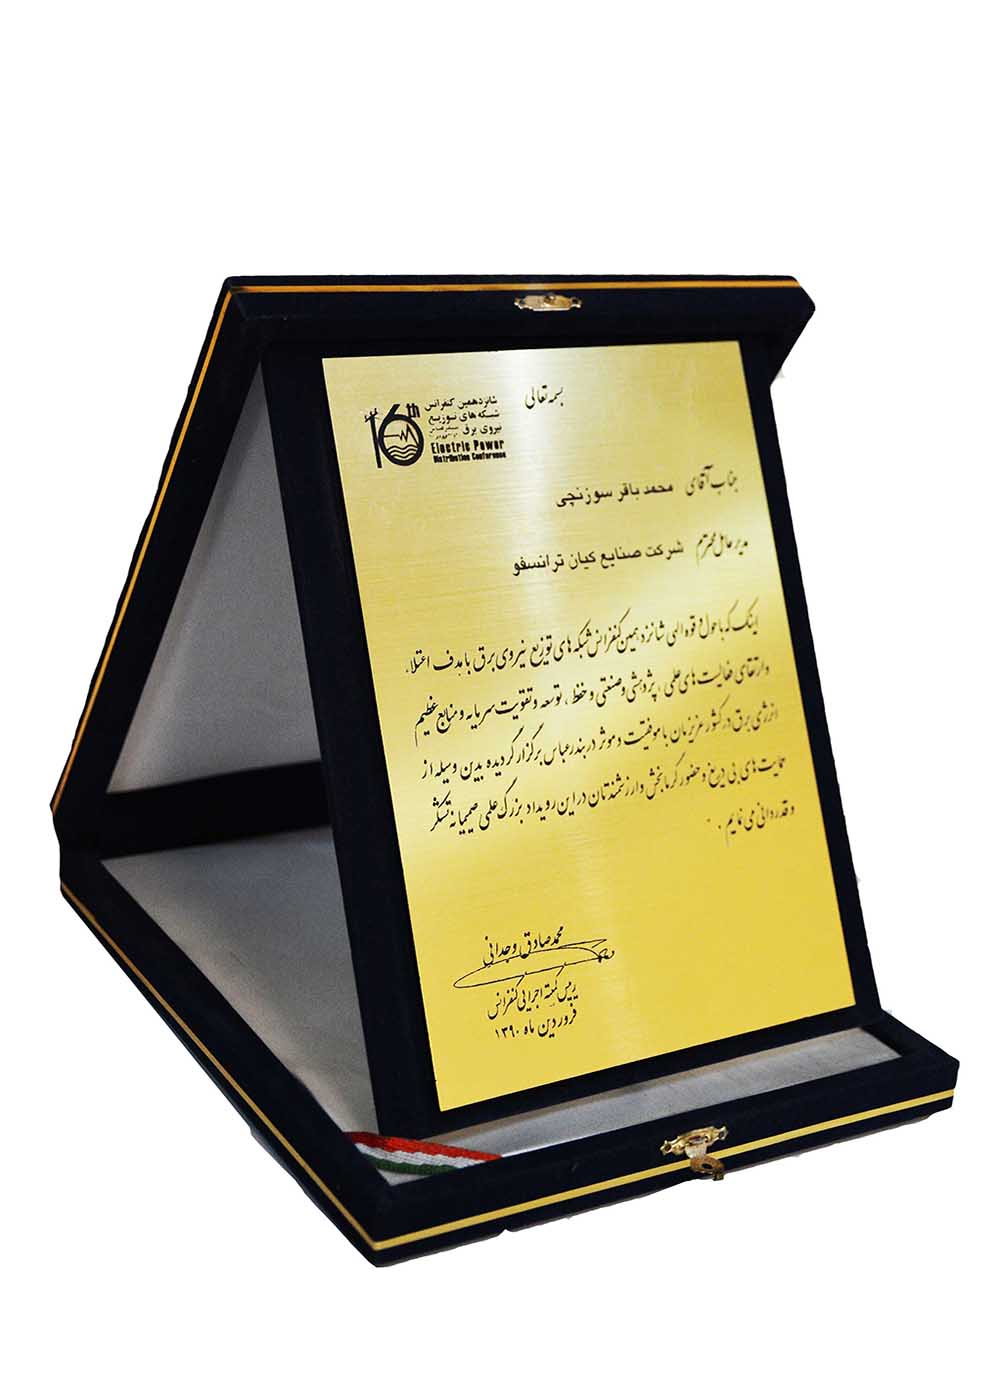 بسمه تعالی
16th
شانزدهمین کنفرانس
شبکه های توزیع
نیروی برق
Electric Power
Distribution Conference
جناب آقای محمد باقر سوزنچی
مدیر عامل محترم شرکت صنایع کیان ترانسفو
اینک که با حول و قوه الهی شانزدهمین کنفرانس شبکه های توزیع نیروی برق با هدف اعتلاء
و ارتقای فعالیت های علمی ، پژوهشی و صنعتی و حفظ ، توسعه و تقویت سرمایه و منابع عظیم
انرژی برق در کشور عزیزمان با موفقیت و موثر در بندرعباس برگزار گردیده بدین وسیله از
حمایت های بی دریغ و حضور گرمابخش و ارزشمندتان در این رویداد بزرگ علمی صمیمانه تشکر
و قدردانی می نمایم .
محمد صادق وجدانی
رییس کمیته اجرایی کنفرانس
فروردین ماه ۱۳۹۰